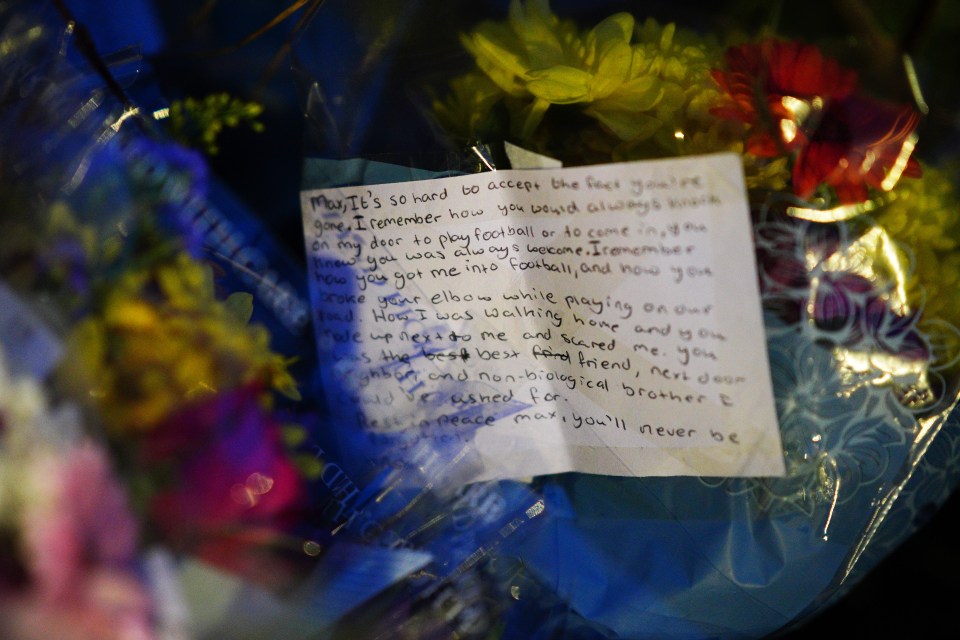 Max, It's so hard to accept the fact you're
gone. I remember how you would always knock
on my door to play football or to come in, you
knew you was always welcome. I remember
how you got me into football, and how you
broke your elbow while playing on our
road. How I was walking home and you
rode up next to me and scared me. you
was the best best friend, next door
and non-biological brother I
asked for.
Rest in peace max, you'll never be